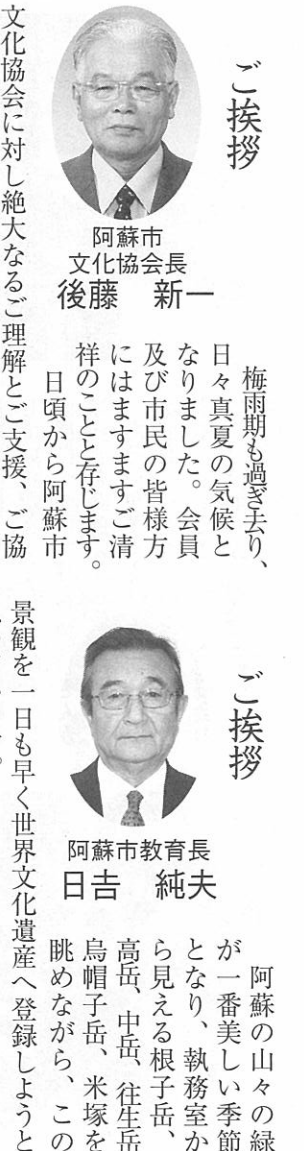 ご挨拶
阿蘇市
文化協会長
後藤　新一
梅雨期も過ぎ去り、
日々真夏の気候と
なりました。会員
及び市民の皆様方
にはますますご清
祥のことと存じます。
日頃から阿蘇市
文化協会に対し絶大なるご理解とご支援、ご協
ご挨拶
阿蘇市教育長
日吉　純夫
阿蘇の山々の緑
が一番美しい季節
となり、執務室か
ら見える根子岳、
高岳、中岳、往生岳
烏帽子岳、米塚を
眺めながら、この
景観を一日も早く世界文化遺産へ登録しようと